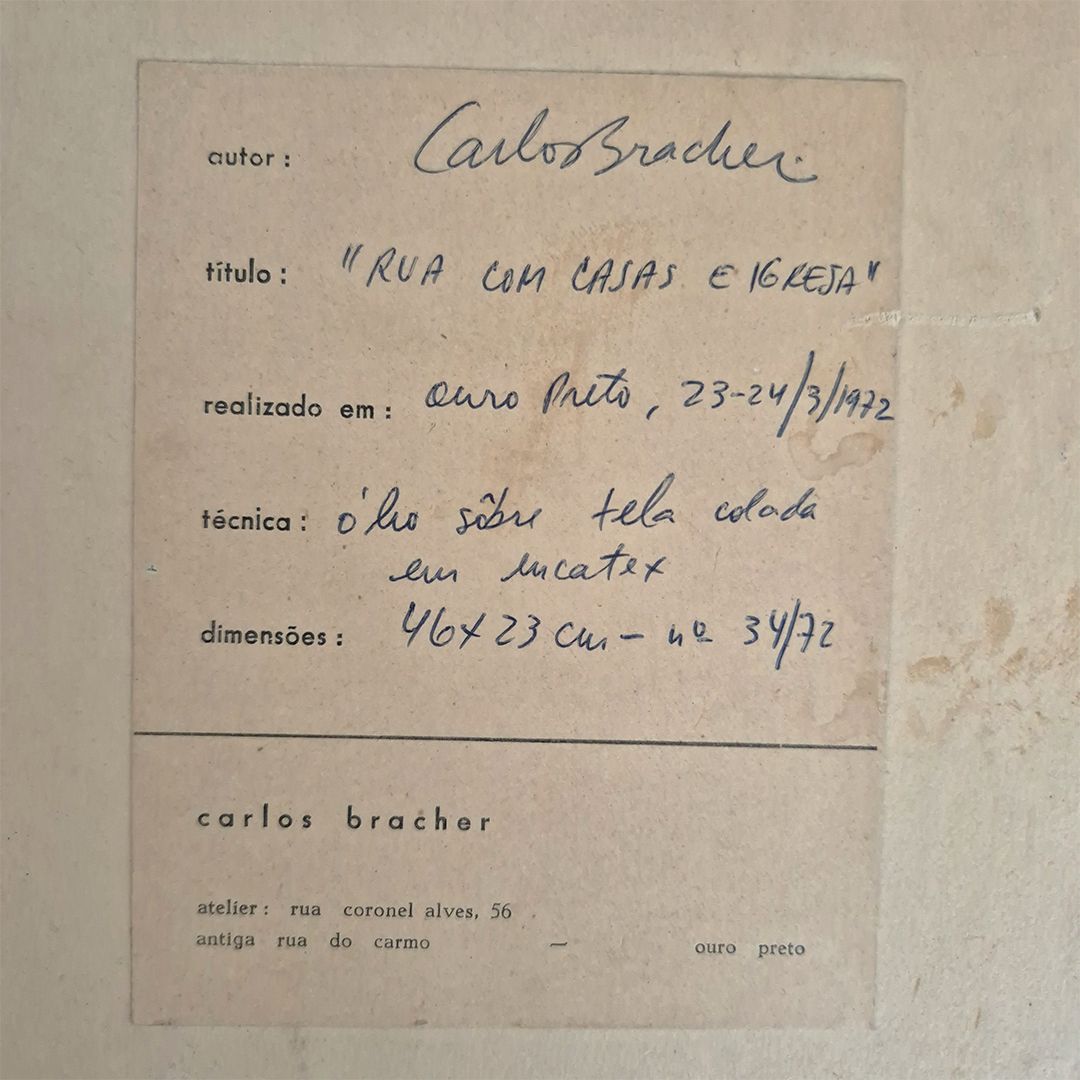 autor: Carlos Bracher.
título: "RUA COM CASAS E IGREJA"
realizado em: Ouro Preto, 23-24/3/1972
técnica: óleo sôbre tela colada
em eucatex
dimensões: 46x23 cm - nº 34/72
carlos bracher
atelier: rua coronel alves, 56
antiga rua do carmo — ouro preto